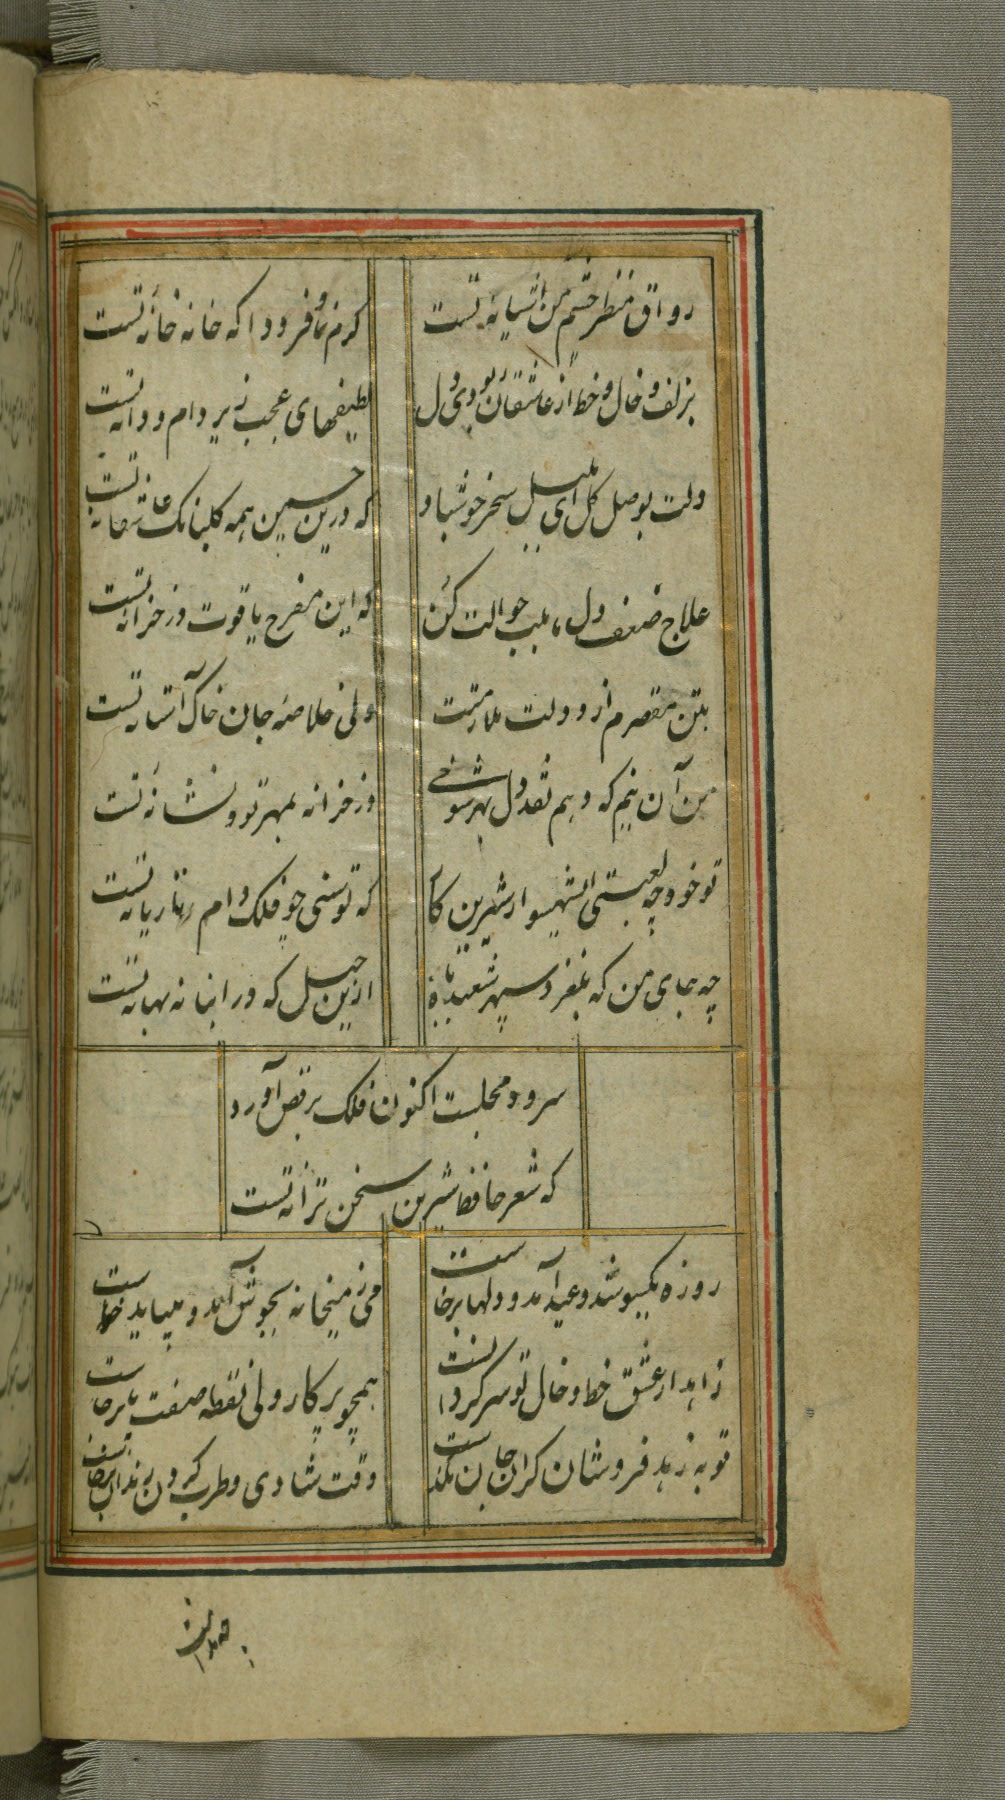 رواق منظر چشم من آشیانه تست
کرم نما و فرود آ که خانه خانه تست
بزلف و خال و خط از عاشقان ربودی دل
لطیفهای عجب زیر دام و دانه تست
دلت بوصل گل ای بلبل سحر خوش باد
که درین چمن همه کلبانک عاشقانه تست
علاج ضعف دل ما بلب حوالت کن
که این مفرح یاقوت در خزانه تست
بتن مقصرم از دولت ملازمتت
ولی خلاصه جان خاک آستانه تست
من آن نیم که دهم نقد دل بهر شوخی
در خزانه بمهر تو و نشانه تست
تو خود چه لعبتی ای شهسوار شیرین کار
که توسنی چو فلک رام تازیانه تست
چه جای من که بلغزد سپهر شعبده باز
ازین حیل که در انبانه بهانه تست
سرود مجلست اکنون فلک برقص آورد
که شعر حافظ شیرین سخن ترانه تست
روزه یکسو شد و عید آمد و دلها برخاست
می ز میخانه بجوش آمد و میباید خواست
زاهد از عشق خط و خال تو سرکردانست
همچو پرکار ولی نقطه صفت پابرجاست
توبه زهد فروشان کران جان بکذشت
وقت شادی و طرب کردن رندان برخاست
چه ملامت